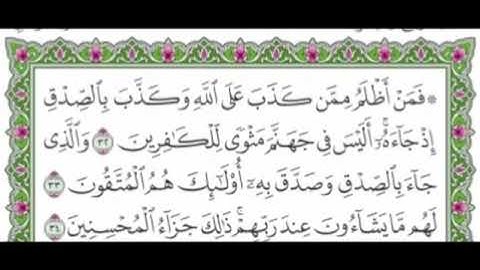 ۞ فَمَنْ أَظْلَمُ مِمَّن كَذَبَ عَلَى ٱللَّهِ وَكَذَّبَ بِٱلصِّدْقِ
إِذْ جَآءَهُۥٓ ۚ أَلَيْسَ فِى جَهَنَّمَ مَثْوًى لِّلْكَٰفِرِينَ ٣٢ وَٱلَّذِى
جَآءَ بِٱلصِّدْقِ وَصَدَّقَ بِهِۦٓ ۙ أُو۟لَٰٓئِكَ هُمُ ٱلْمُتَّقُونَ ٣٣
لَهُم مَّا يَشَآءُونَ عِندَ رَبِّهِمْ ۚ ذَٰلِكَ جَزَآءُ ٱلْمُحْسِنِينَ ٣٤